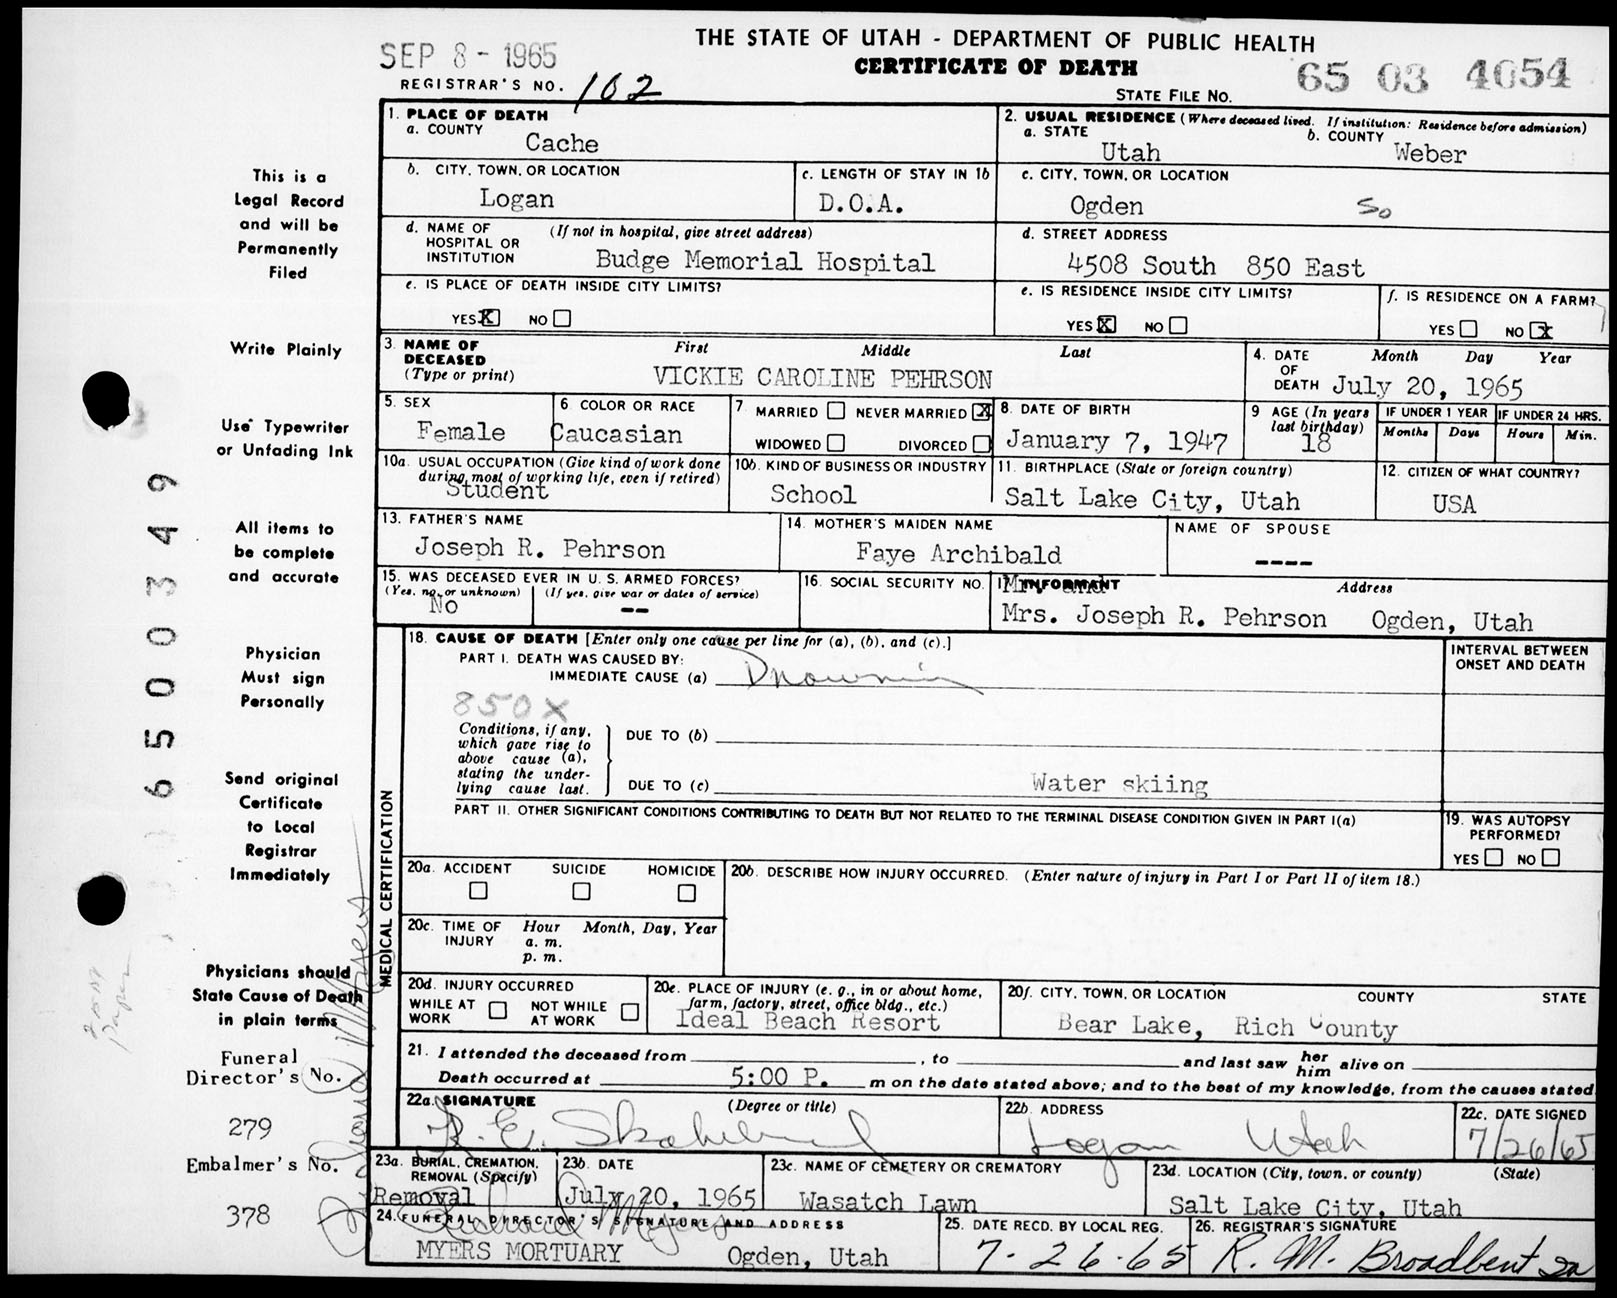 THE STATE OF UTAH - DEPARTMENT OF PUBLIC HEALTH
CERTIFICATE OF DEATH
SEP 8 - 1965
REGISTRAR'S NO. 102
STATE FILE NO. 65 03 4054
This is a
Legal Record
and will be
Permanently
Filed
Write Plainly
Use Typewriter
or Unfading Ink
All items to
be complete
and accurate
Physician
Must sign
Personally
Send original
Certificate
to Local
Registrar
Immediately
Physicians should
State Cause of Death
in plain terms
Funeral
Director's No.
279
Embalmer's No.
378
6500349
1. PLACE OF DEATH
a. COUNTY
Cache
2. USUAL RESIDENCE (Where deceased lived. If institution: Residence before admission)
a. STATE
Utah
b. COUNTY
Weber
b. CITY, TOWN, OR LOCATION
Logan
c. LENGTH OF STAY IN 1b
D.O.A.
c. CITY, TOWN, OR LOCATION
Ogden So
d. NAME OF HOSPITAL OR INSTITUTION (If not in hospital, give street address)
Budge Memorial Hospital
d. STREET ADDRESS
4508 South 850 East
e. IS PLACE OF DEATH INSIDE CITY LIMITS?
YES X NO
e. IS RESIDENCE INSIDE CITY LIMITS?
YES X NO
f. IS RESIDENCE ON A FARM?
YES NO X
3. NAME OF DECEASED (Type or print)
First Middle Last
VICKIE CAROLINE PEHRSON
4. DATE OF DEATH
Month Day Year
July 20, 1965
5. SEX
Female
6 COLOR OR RACE
Caucasian
7 MARRIED NEVER MARRIED X
WIDOWED DIVORCED
8. DATE OF BIRTH
January 7, 1947
9 AGE (In years last birthday)
18
IF UNDER 1 YEAR
Months Days
IF UNDER 24 HRS.
Hours Min.
10a. USUAL OCCUPATION (Give kind of work done during most of working life, even if retired)
Student
10b. KIND OF BUSINESS OR INDUSTRY
School
11. BIRTHPLACE (State or foreign country)
Salt Lake City, Utah
12. CITIZEN OF WHAT COUNTRY?
USA
13. FATHER'S NAME
Joseph R. Pehrson
14. MOTHER'S MAIDEN NAME
Faye Archibald
NAME OF SPOUSE
----
15. WAS DECEASED EVER IN U. S. ARMED FORCES?
(Yes, no, or unknown) (If yes, give war or dates of service)
No --
16. SOCIAL SECURITY NO.
INFORMANT Address
Mr. and
Mrs. Joseph R. Pehrson Ogden, Utah
MEDICAL CERTIFICATION
18. CAUSE OF DEATH [Enter only one cause per line for (a), (b), and (c).]
PART I. DEATH WAS CAUSED BY:
IMMEDIATE CAUSE (a) Drowning
INTERVAL BETWEEN
ONSET AND DEATH
850X
Conditions, if any,
which gave rise to
above cause (a),
stating the under-
lying cause last.
DUE TO (b)
DUE TO (c) Water skiing
PART II. OTHER SIGNIFICANT CONDITIONS CONTRIBUTING TO DEATH BUT NOT RELATED TO THE TERMINAL DISEASE CONDITION GIVEN IN PART I(a)
19. WAS AUTOPSY
PERFORMED?
YES NO
20a. ACCIDENT SUICIDE HOMICIDE
20b. DESCRIBE HOW INJURY OCCURRED. (Enter nature of injury in Part I or Part II of item 18.)
20c. TIME OF INJURY Hour Month, Day, Year
a. m.
p. m.
20d. INJURY OCCURRED
WHILE AT WORK NOT WHILE AT WORK
20e. PLACE OF INJURY (e. g., in or about home, farm, factory, street, office bldg., etc.)
Ideal Beach Resort
20f. CITY, TOWN, OR LOCATION COUNTY STATE
Bear Lake, Rich County
21. I attended the deceased from , to and last saw her him alive on
Death occurred at 5:00 P. m on the date stated above; and to the best of my knowledge, from the causes stated
22a. SIGNATURE (Degree or title)
22b. ADDRESS
Logan Utah
22c. DATE SIGNED
7/26/65
23a. BURIAL, CREMATION, REMOVAL (Specify)
Removal
23b. DATE
July 20, 1965
23c. NAME OF CEMETERY OR CREMATORY
Wasatch Lawn
23d. LOCATION (City, town, or county) (State)
Salt Lake City, Utah
24. FUNERAL DIRECTOR'S SIGNATURE AND ADDRESS
Richard Myers
MYERS MORTUARY Ogden, Utah
25. DATE RECD. BY LOCAL REG.
7-26-65
26. REGISTRAR'S SIGNATURE
R. M. Broadbent